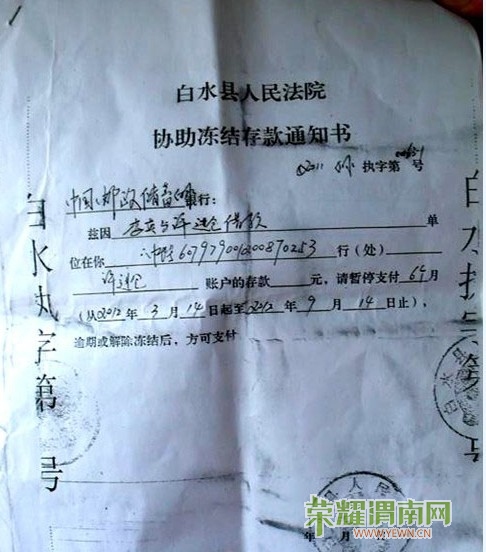 白水县人民法院
协助冻结存款通知书
2011 执字第 号
中国邮政储蓄银行:
兹因 与许 借款 单
位在你 行(处)
许 账户的存款 元,请暂停支付 6个月
(从2012年3月14日起至2012年9月14日止),
逾期或解除冻结后,方可支付
白水执字第 号
白水执字第 号
荣耀渭南网
WWW.YEWN.CN